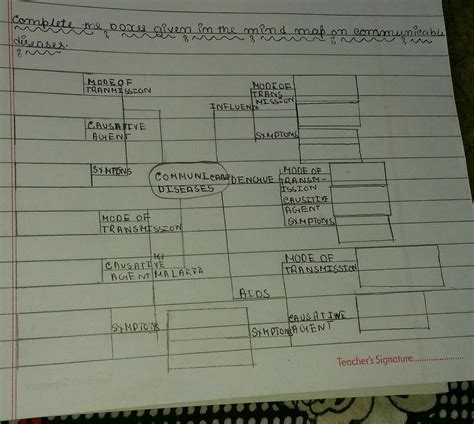 Complete the boxes given in the mind map on communicable
diseases.
MODE OF
TRANMISSION
MODE OF
TRANS
MISSION
INFLUEN
CAUSATIVE
AGENT
SYMPTOMS
SYMPTOMS
COMMUNICABLE
DISEASES
DENGUE
MODE OF
TRANSM-
ISSION
CAUSITIVE
AGENT
SYMPTOMS
MODE OF
TRANSMISSION
CAUSATIVE
AGENT
MALARIA
MODE OF
TRANSMISSION
AIDS
SYMPTOMS
SYMPTOMS
CAUSATIVE
AGENT
Teacher's Signature